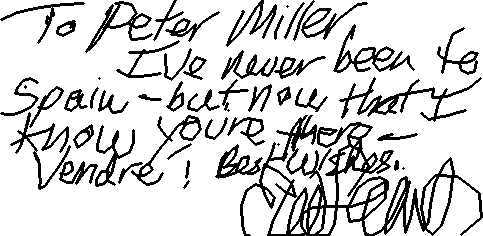 To Peter Miller
I've never been to
Spain - but now that I
know youre there -
Vendré! Best wishes.